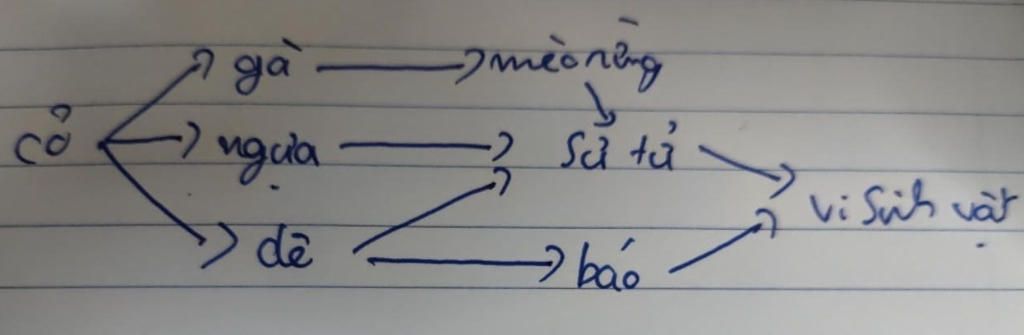 gà mèo rừng
cỏ ngựa sư tử
vi sinh vật
dê báo